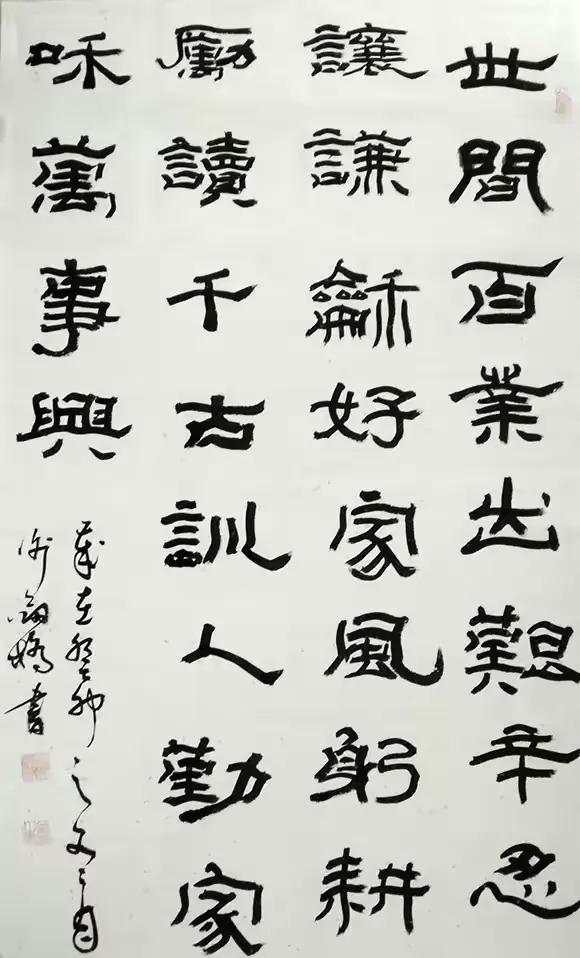 世間百業出艱辛忍
讓謙龢好家風躬耕
勵讀千古訓人勤家
咊萬事興
歲在癸卯之月
書